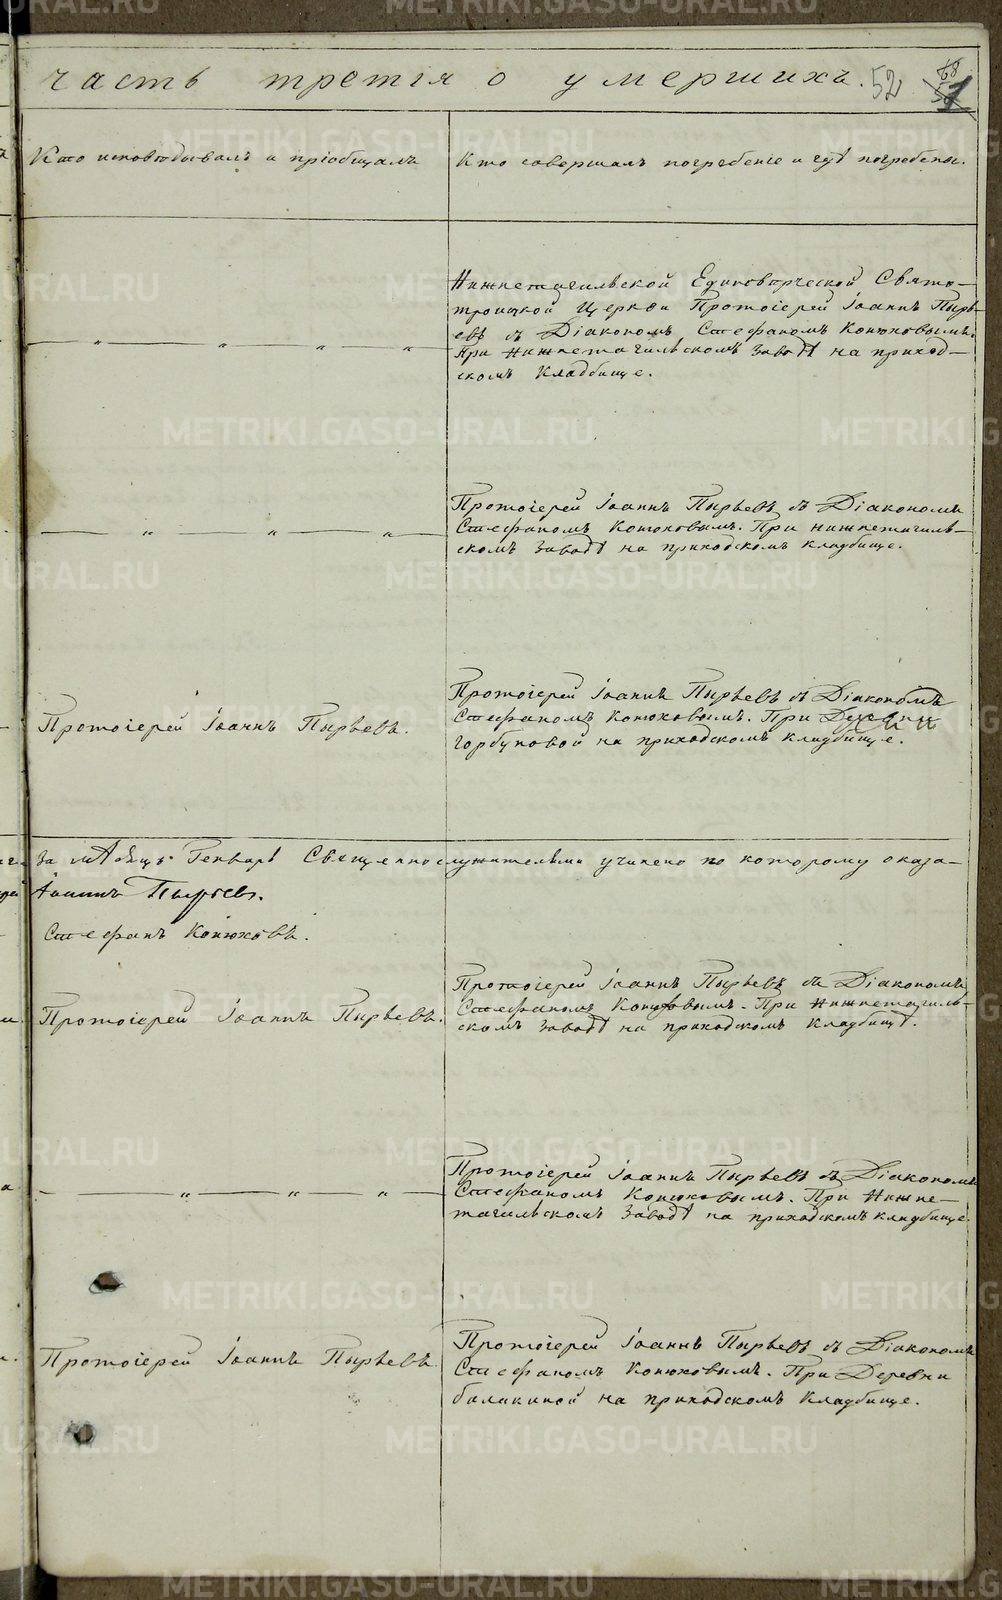 часть третія о умершихъ. 52
Кто исповѣдывалъ и пріобщалъ
Кто совершалъ погребеніе и гдѣ погребены.
Нижнетагильской Единовѣрческой Свято-
троицкой Церкви Протоіерей Іоаннъ Пырь-
евъ съ Діакономъ Стефаномъ Конюховымъ.
При Нижнетагильскомъ Заводѣ на приход-
скомъ Кладбище.
Протоіерей Іоаннъ Пырьевъ съ Діакономъ
Стефаномъ Конюховымъ. При нижнетагиль-
скомъ Заводѣ на приходскомъ Кладбище.
Протоіерей Іоаннъ Пырьевъ.
Протоіерей Іоаннъ Пырьевъ съ Діакономъ
Стефаномъ Конюховымъ. При
Горбуновой на приходскомъ Кладбище.
За мѣсяцъ Генварь Священнослужителями учинено по которому оказа-
Іоаннъ Пырьевъ.
Стефанъ Конюховъ.
Протоіерей Іоаннъ Пырьевъ.
Протоіерей Іоаннъ Пырьевъ съ Діакономъ
Стефаномъ Конюховымъ. При Нижнетагиль-
скомъ Заводѣ на приходскомъ Кладбищѣ.
Протоіерей Іоаннъ Пырьевъ съ Діакономъ
Стефаномъ Конюховымъ. При Нижне-
тагильскомъ Заводѣ на приходскомъ кладбище
Протоіерей Іоаннъ Пырьевъ.
Протоіерей Іоаннъ Пырьевъ съ Діакономъ
Стефаномъ Конюховымъ. При Деревни
балакиной на приходскомъ Кладбище.
METRIKI.GASO-URAL.RU